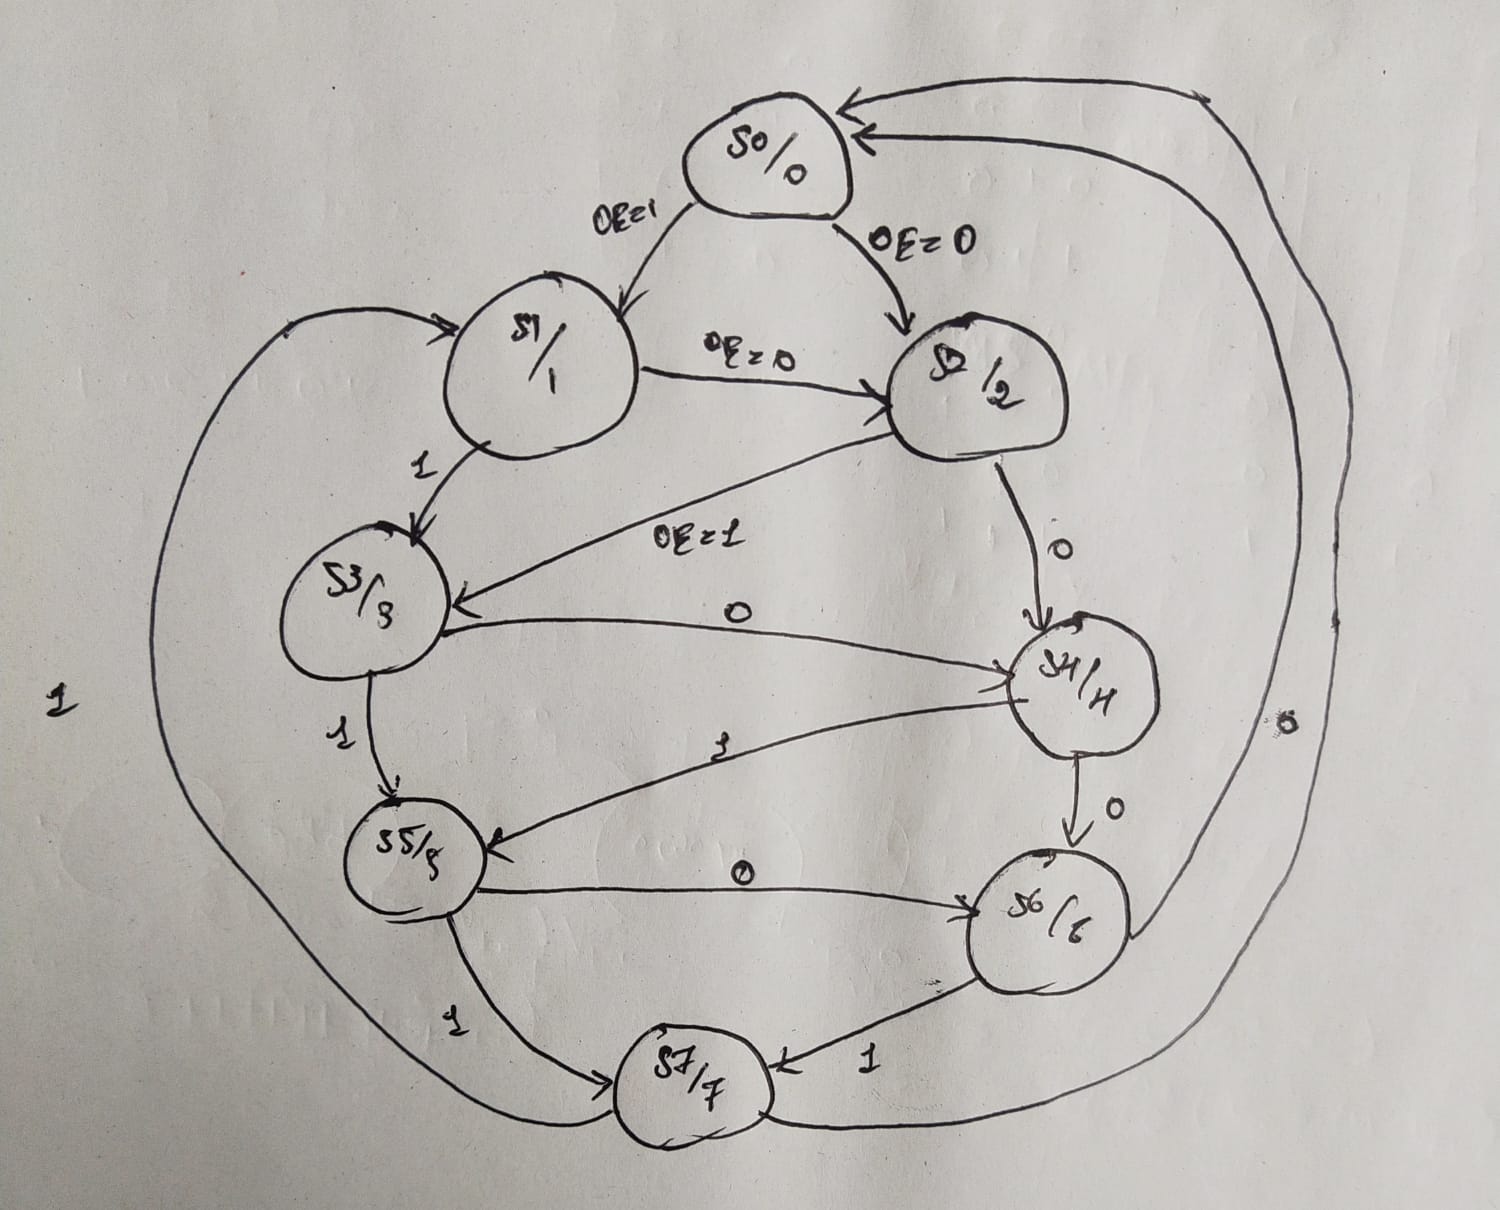 S0/0
OE=1
OE=0
S1/1
OE=0
S2/2
1
OE=1
0
S3/3
0
S4/4
1
1
1
0
0
S5/5
0
S6/6
1
1
S7/7